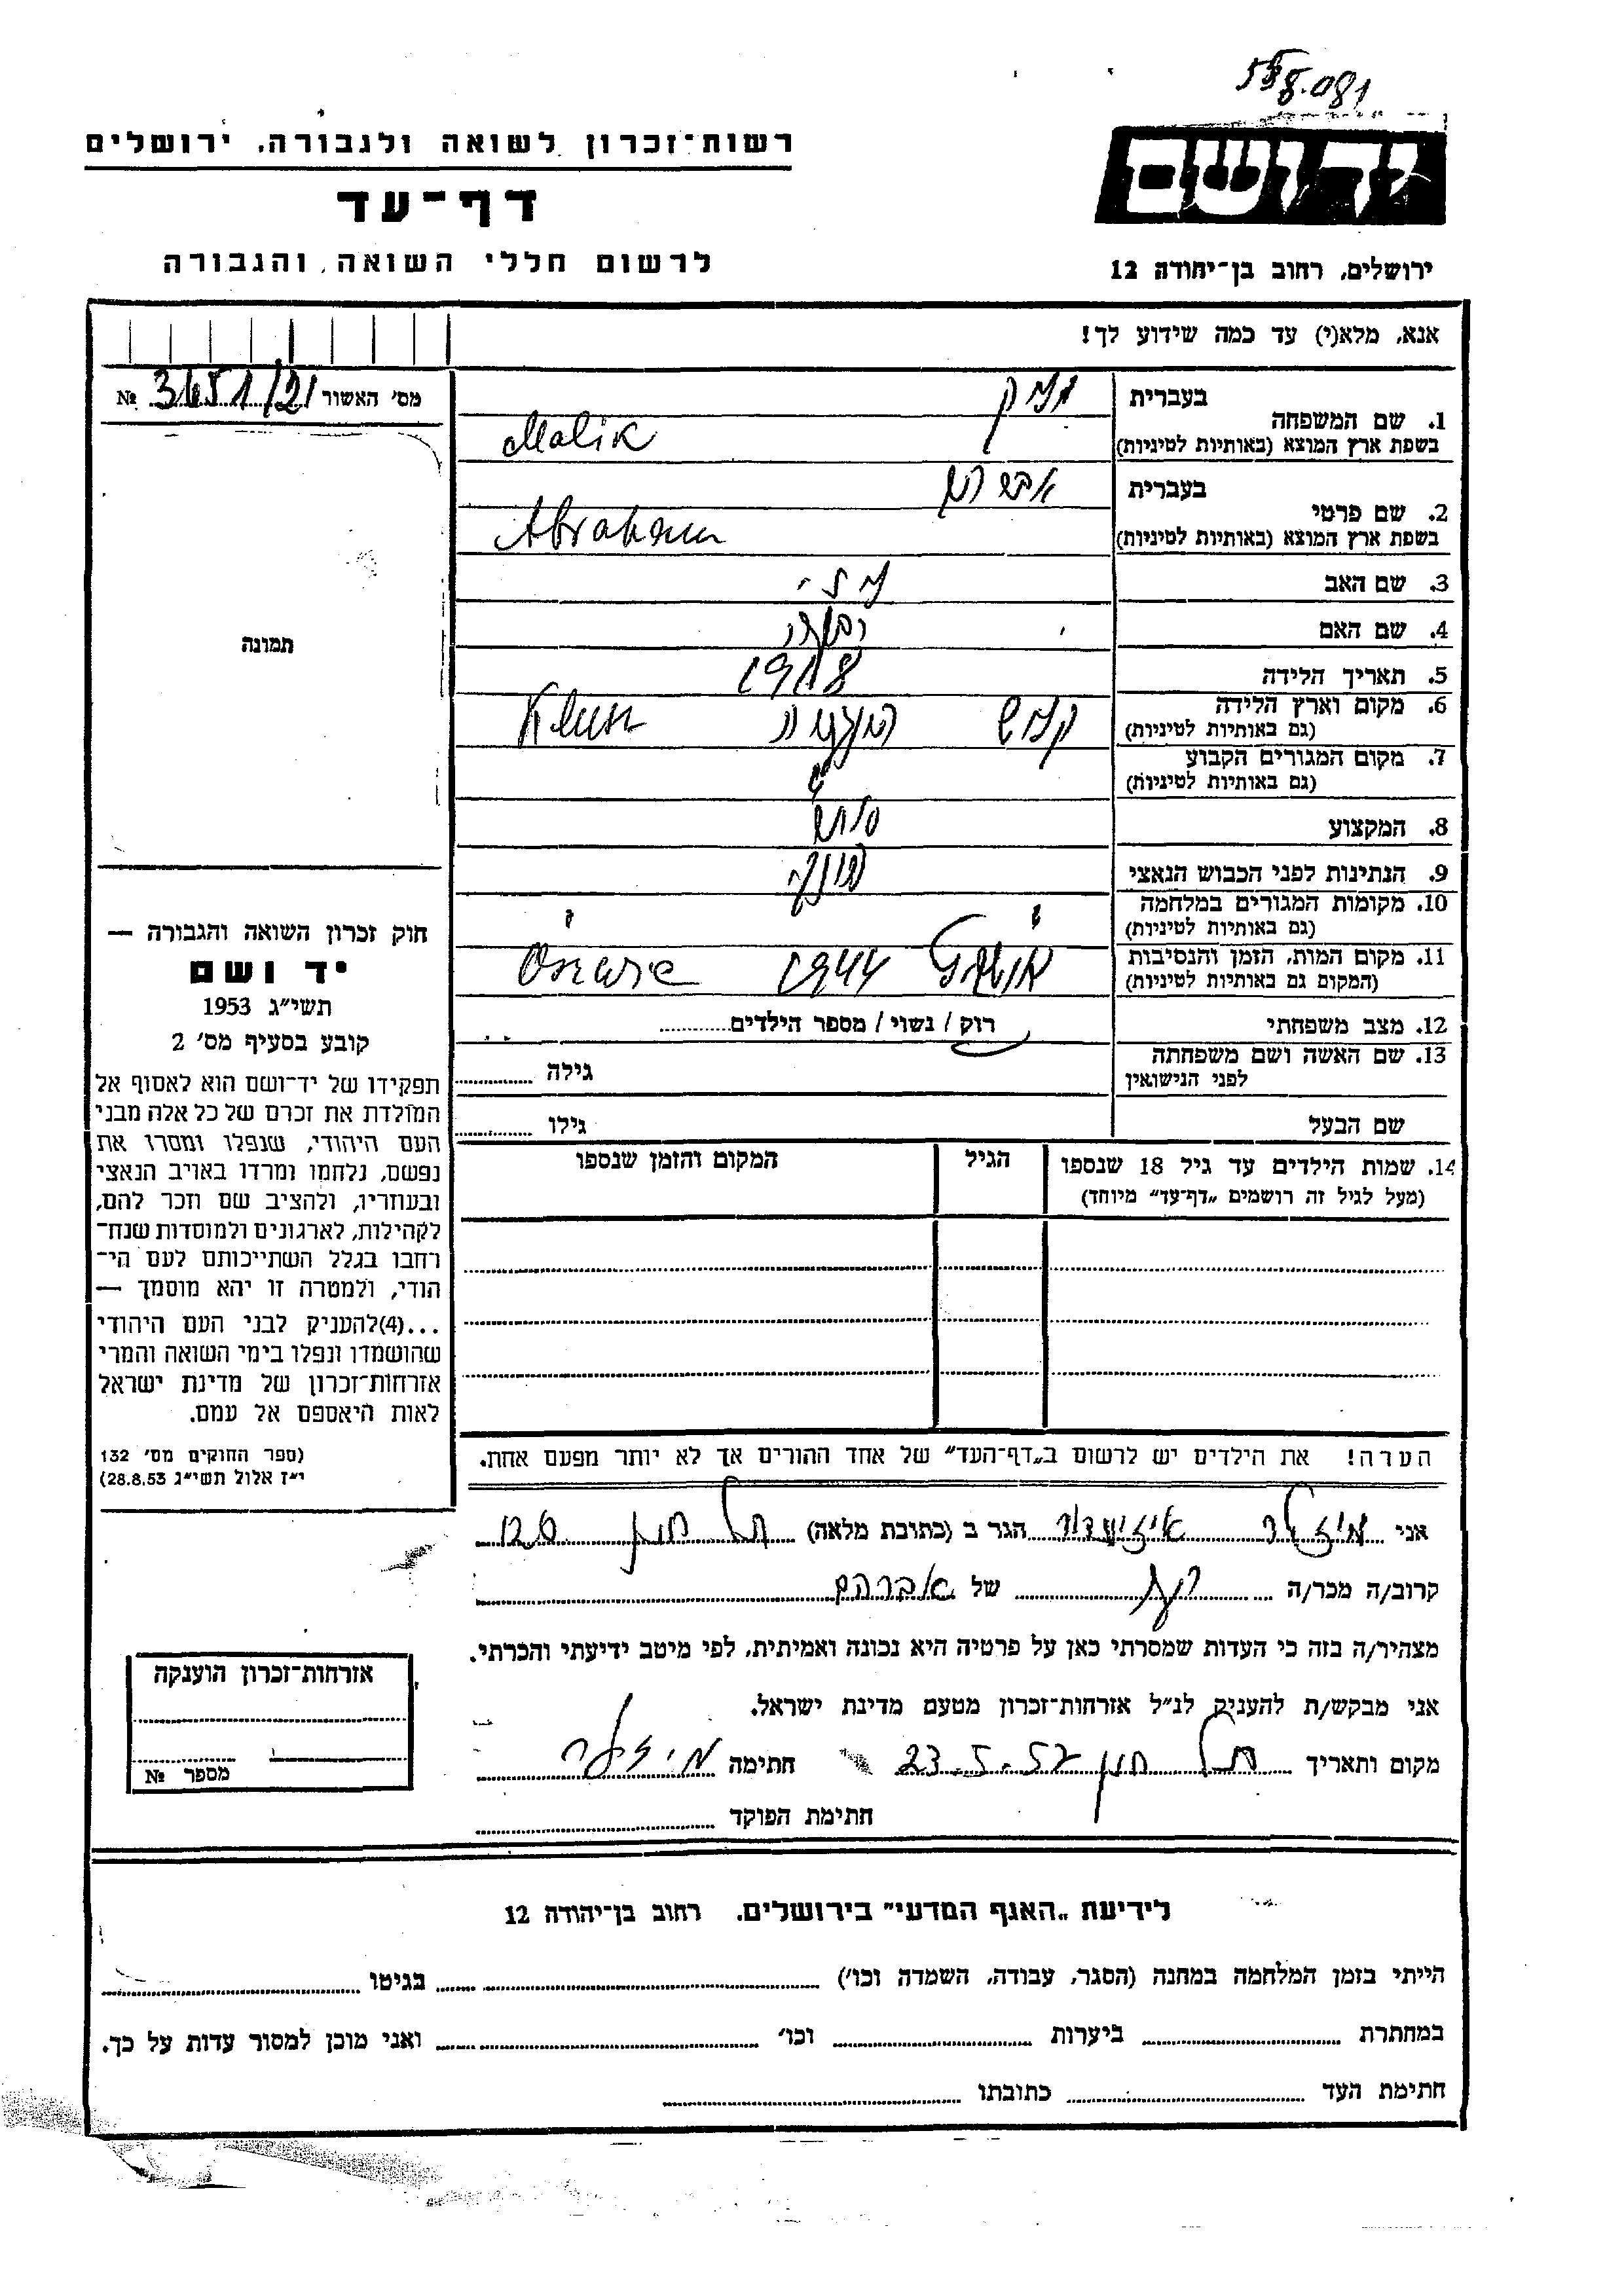 רשות־זכרון לשואה ולגבורה, ירושלים
דף־עד
לרשום חללי השואה והגבורה
ידושם
ירושלים, רחוב בן־יהודה 12
אנא, מלא(י) עד כמה שידוע לך!
מס׳ האשור №
בעברית
1. שם המשפחה
בשפת ארץ המוצא (באותיות לטיניות) Malik
בעברית
2. שם פרטי
בשפת ארץ המוצא (באותיות לטיניות) Abraham
3. שם האב
4. שם האם
5. תאריך הלידה 1918
6. מקום וארץ הלידה
(גם באותיות לטיניות)
7. מקום המגורים הקבוע
(גם באותיות לטיניות)
8. המקצוע
9. הנתינות לפני הכבוש הנאצי
10. מקומות המגורים במלחמה
(גם באותיות לטיניות)
11. מקום המות, הזמן והנסיבות 1944
(המקום גם באותיות לטיניות)
12. מצב משפחתי רוק / נשוי / מספר הילדים
13. שם האשה ושם משפחתה
לפני הנישואין גילה
שם הבעל גילו
14. שמות הילדים עד גיל 18 שנספו הגיל המקום והזמן שנספו
(מעל לגיל זה רושמים „דף־עד״ מיוחד)
הערה! את הילדים יש לרשום ב„דף־העד״ של אחד ההורים אך לא יותר מפעם אחת.
תמונה
חוק זכרון השואה והגבורה —
יד ושם
תשי״ג 1953
קובע בסעיף מס׳ 2
תפקידו של יד־ושם הוא לאסוף אל
המולדת את זכרם של כל אלה מבני
העם היהודי, שנפלו ומסרו את
נפשם, נלחמו ומרדו באויב הנאצי
ובעוזריו, ולהציב שם וזכר להם,
לקהילות, לארגונים ולמוסדות שנח־
רחבו בגלל השתייכותם לעם הי־
הודי, ולמטרה זו יהא מוסמך —
...(4)להעניק לבני העם היהודי
שהושמדו ונפלו בימי השואה והמרי
אזרחות־זכרון של מדינת ישראל
לאות היאספם אל עמם.
(ספר החוקים מס׳ 132
י״ז אלול תשי״ג 28.8.53)
אני הגר ב (כתובת מלאה)
קרוב/ה מכר/ה של אברהם
מצהיר/ה בזה כי העדות שמסרתי כאן על פרטיה היא נכונה ואמיתית, לפי מיטב ידיעתי והכרתי.
אני מבקש/ת להעניק לנ״ל אזרחות־זכרון מטעם מדינת ישראל.
מקום ותאריך 23.5.57 חתימה
חתימת הפוקד
אזרחות־זכרון הוענקה
מספר №
לידיעת „האגף המדעי״ בירושלים, רחוב בן־יהודה 12
הייתי בזמן המלחמה במחנה (הסגר, עבודה, השמדה וכו׳) בגיטו
במחתרת ביערות וכו׳ ואני מוכן למסור עדות על כך.
חתימת העד כתובתו